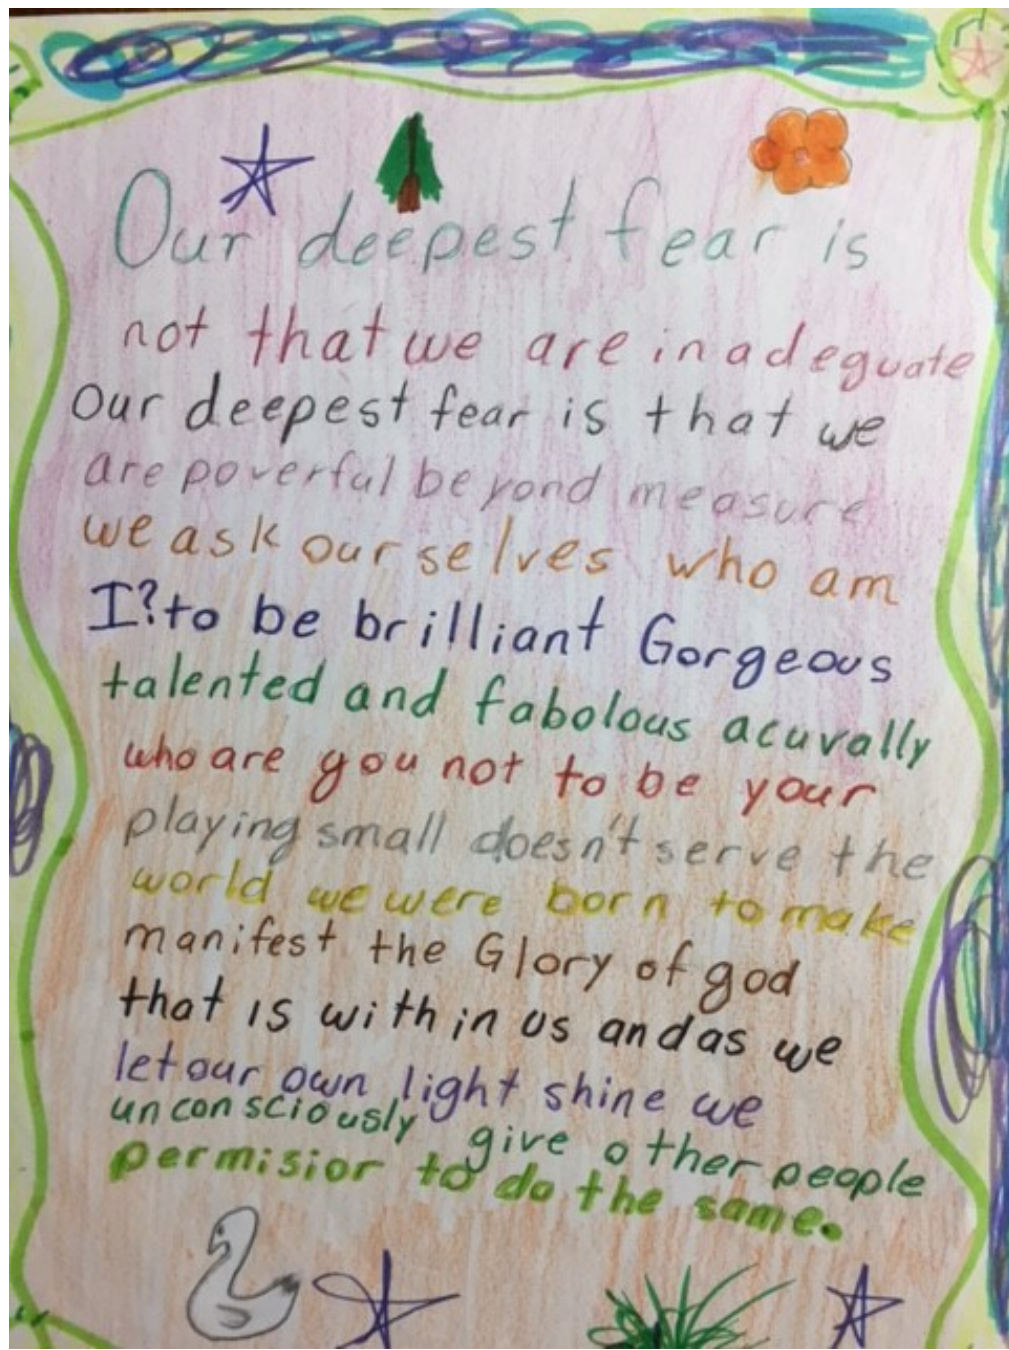 Our deepest fear is
not that we are inadeguate
Our deepest fear is that we
are poverful beyond measure
we ask our selves who am
I? to be brilliant Gorgeous
talented and fabolous acuvally
who are you not to be your
playing small doesn't serve the
world we were born to make
manifest the Glory of god
that is with in us and as we
let our own light shine we
unconsciously give other people
permisior to do the same.